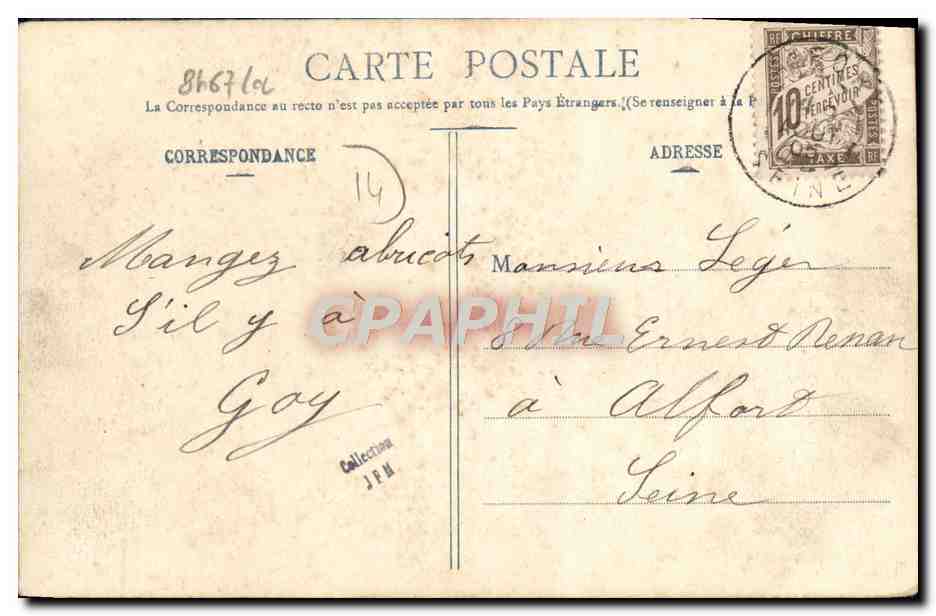 CARTE POSTALE
La Correspondance au recto n'est pas acceptée par tous les Pays Étrangers. (Se renseigner à la P
CORRESPONDANCE
14
Mangez abricots
S'il y à
Goy
Collection
JPM
ADRESSE
Monsieur Léger
8 Rue Ernest Renan
à Alfort
Seine
CHIFFRE
RF
POSTES
10 CENTIMES
A PERCEVOIR
TAXE
RF
SEINE
CPAPHIL